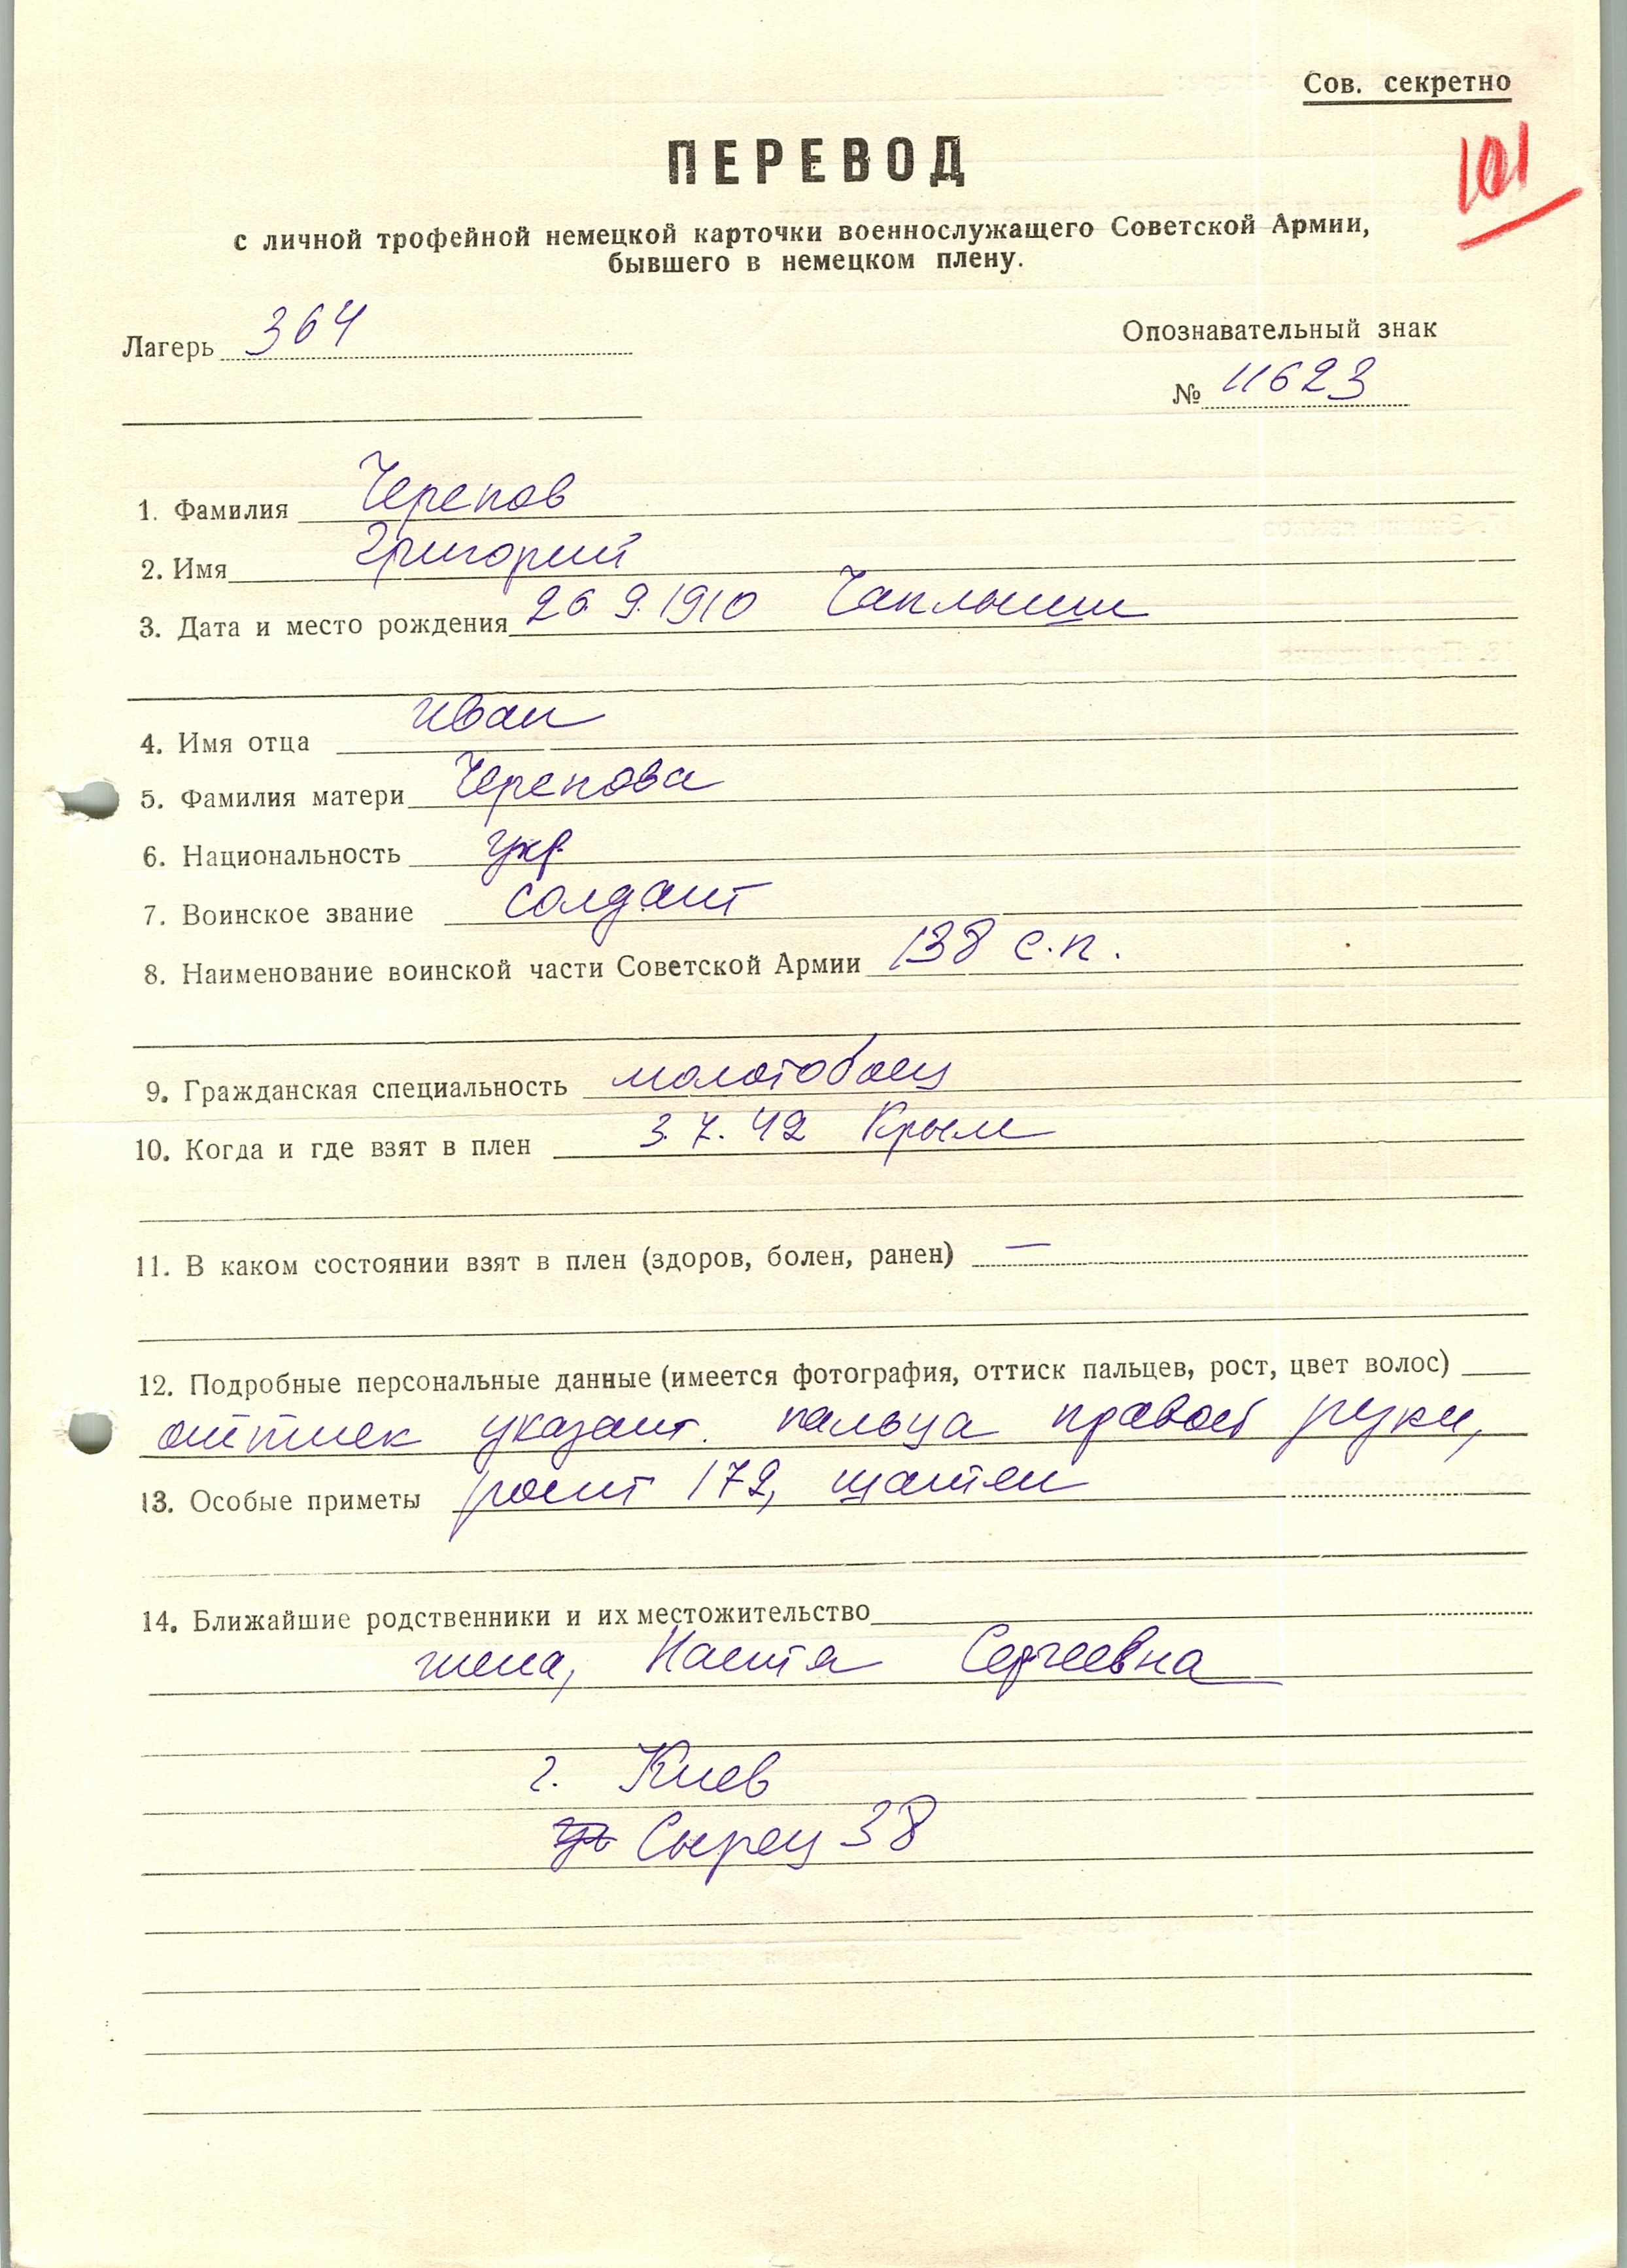 Сов. секретно
101
ПЕРЕВОД
с личной трофейной немецкой карточки военнослужащего Советской Армии,
бывшего в немецком плену.
Лагерь 364
Опознавательный знак
№ 11623
1. Фамилия Черепов
2. Имя Григорий
3. Дата и место рождения 26.9.1910
4. Имя отца Иван
5. Фамилия матери Черепова
6. Национальность укр.
7. Воинское звание солдат
8. Наименование воинской части Советской Армии 138 с.п.
9. Гражданская специальность молотобоец
10. Когда и где взят в плен 3.7.42 Крым
11. В каком состоянии взят в плен (здоров, болен, ранен) —
12. Подробные персональные данные (имеется фотография, оттиск пальцев, рост, цвет волос)
оттиск указат. пальца правой руки,
13. Особые приметы рост 172, шатен
14. Ближайшие родственники и их местожительство
жена, Настя Сергеевна
г. Киев
Сырец 38